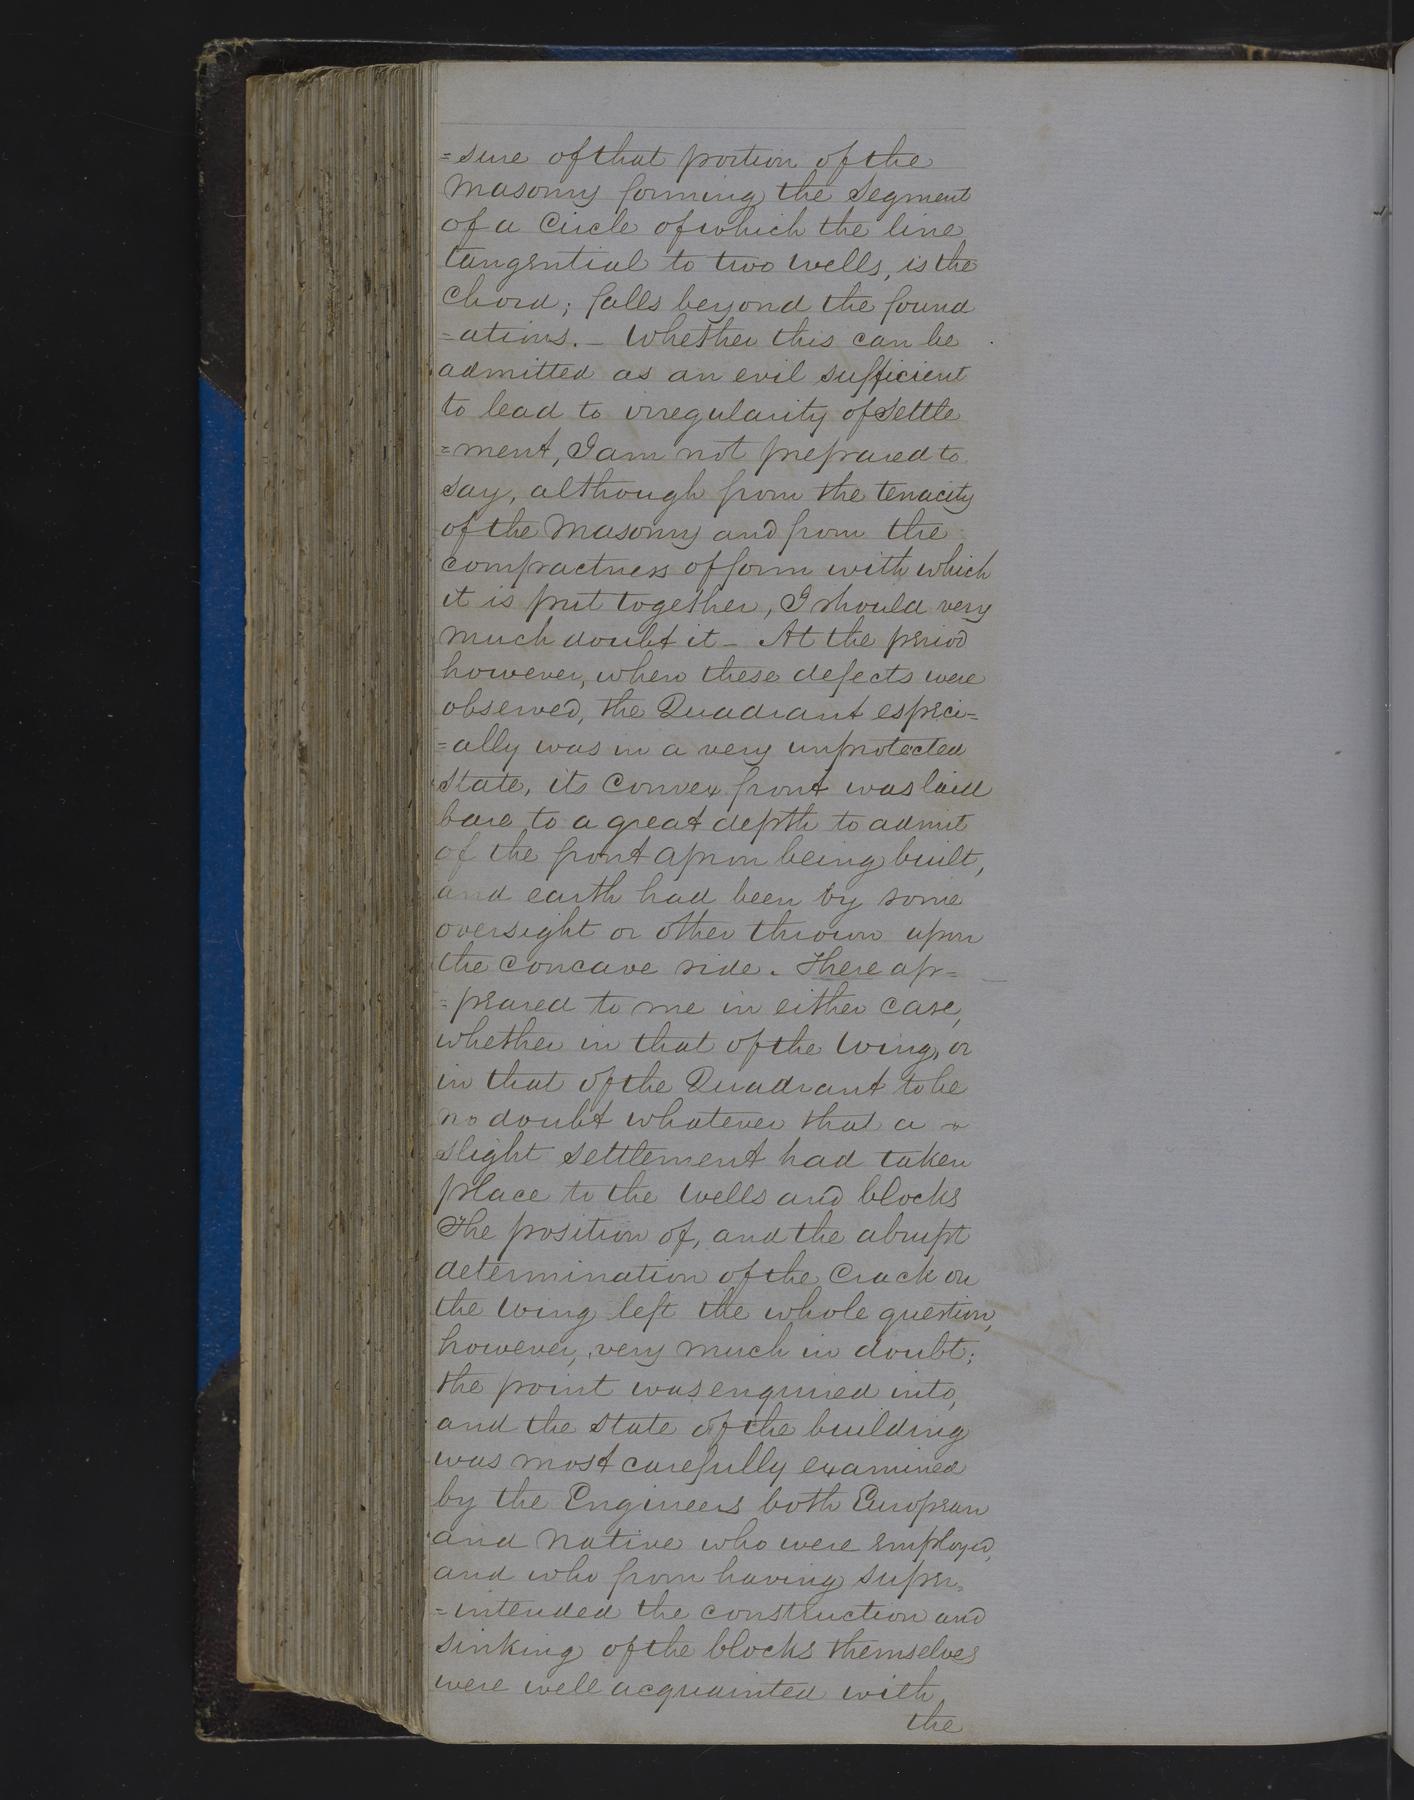 =sure of that portion of the
Masonry forming the Segment
of a Circle of which the line
tangential to two wells, is the
Chord; falls beyond the found
=ations. – Whether this can be
admitted as an evil sufficient
to lead to irregularity of Settle
=ment, I am not prepared to
say, although from the tenacity
of the Masonry and from the
compactness of form with which
it is put together, I should very
much doubt it – At the period
however, when these defects were
observed, the Quadrant especi=
=ally was in a very unprotected
state, its Convex front was laid
bare to a great depth to admit
of the front apron being built,
and earth had been by some
oversight or other thrown upon
the concave side. There ap=
=peared to me in either case,
whether in that of the Wing, or
in that of the Quadrant to be
no doubt whatever that a
slight settlement had taken
place to the wells and blocks
The position of, and the abrupt
determination of the Crack on
the Wing left the whole question,
however, very much in doubt;
the point was enquired into,
and the state of the building
was most carefully examined
by the Engineers both European
and Native who were employed,
and who from having super,
=intended the construction and
sinking of the blocks themselves
were well acquainted with
the